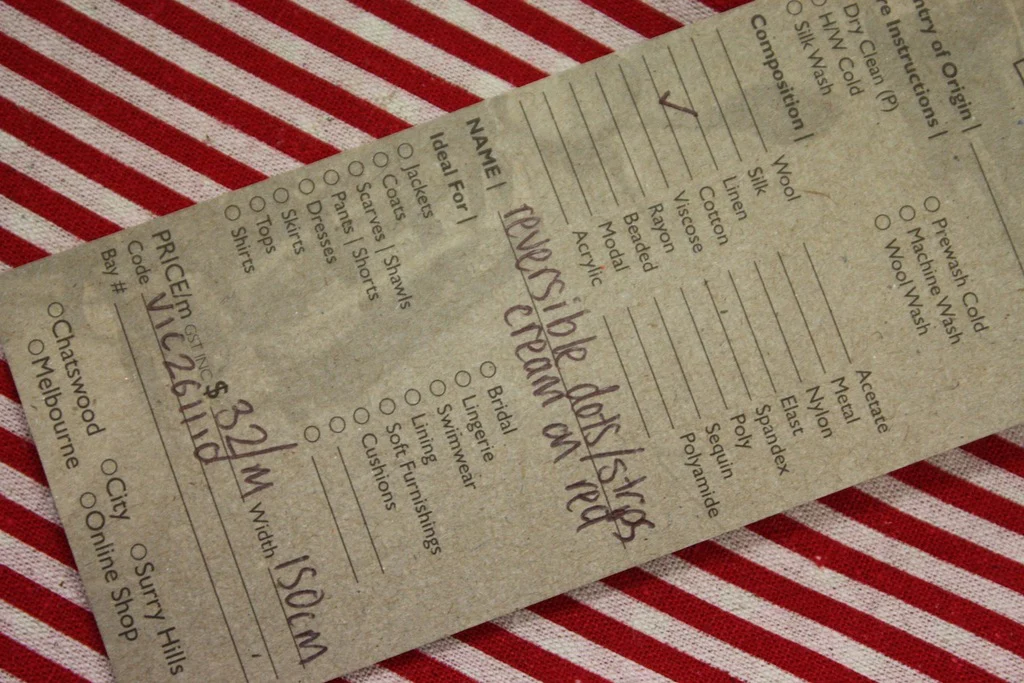 ntry of Origin |
re Instructions |
Dry Clean (P)
H/W Cold
Silk Wash
Prewash Cold
Machine Wash
Wool Wash
Composition |
Wool
Silk
Linen
✓ Cotton
Viscose
Rayon
Beaded
Modal
Acrylic
Acetate
Metal
Nylon
Elast
Spandex
Poly
Sequin
Polyamide
NAME | reversible dots/strps
cream on red
Ideal For |
Jackets
Coats
Scarves | Shawls
Pants | Shorts
Dresses
Skirts
Tops
Shirts
Bridal
Lingerie
Swimwear
Lining
Soft Furnishings
Cushions
PRICE/m GST INC $ 32/m Width 150cm
Code Vic26111d
Bay #
Chatswood City Surry Hills
Melbourne Online Shop